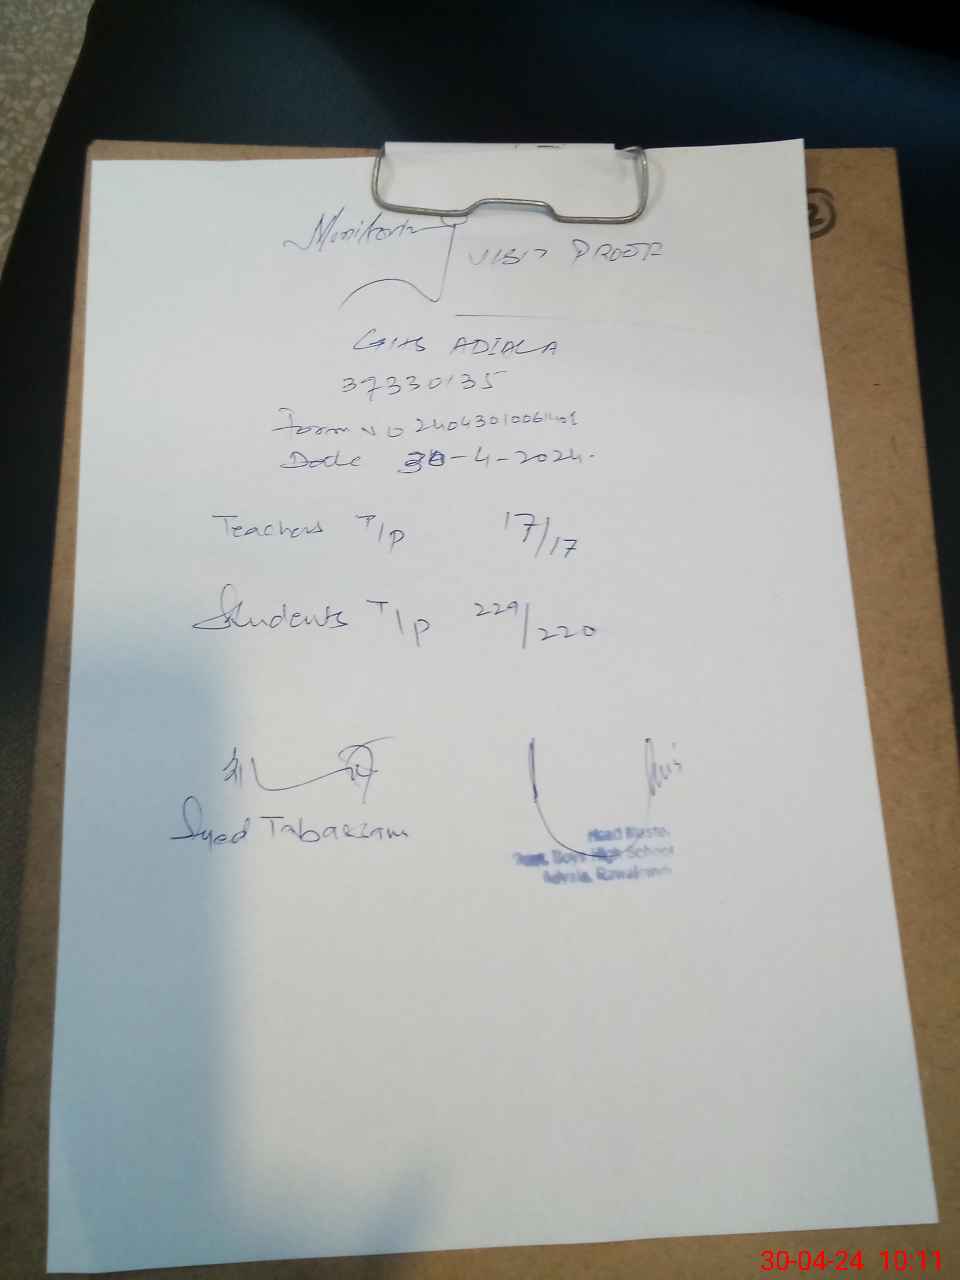 Monitoring
VISIT PROOF
GHS ADIALA
37330135
Form NO
Date 30-4-2024.
Teachers T/p 17/17
Students T/p 229/220
Syed Tabassam
Head Master
Govt. Boys High School
Adyala, Rawalpindi
30-04-24 10:11